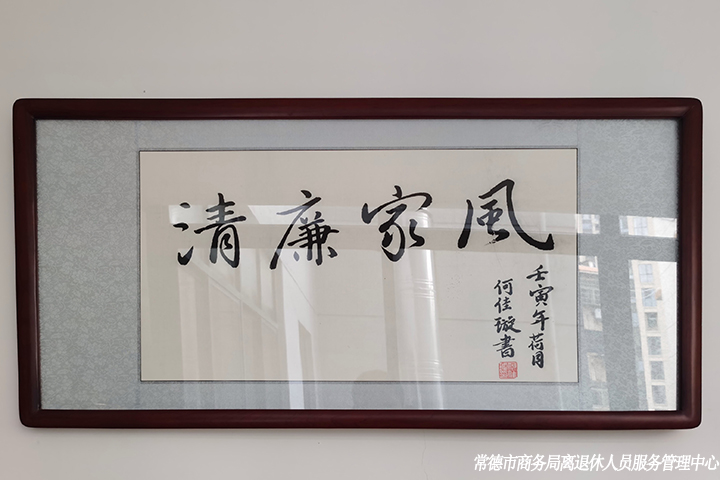 清廉家風
壬寅年荷月
何佳璇書
常德市商务局离退休人员服务管理中心